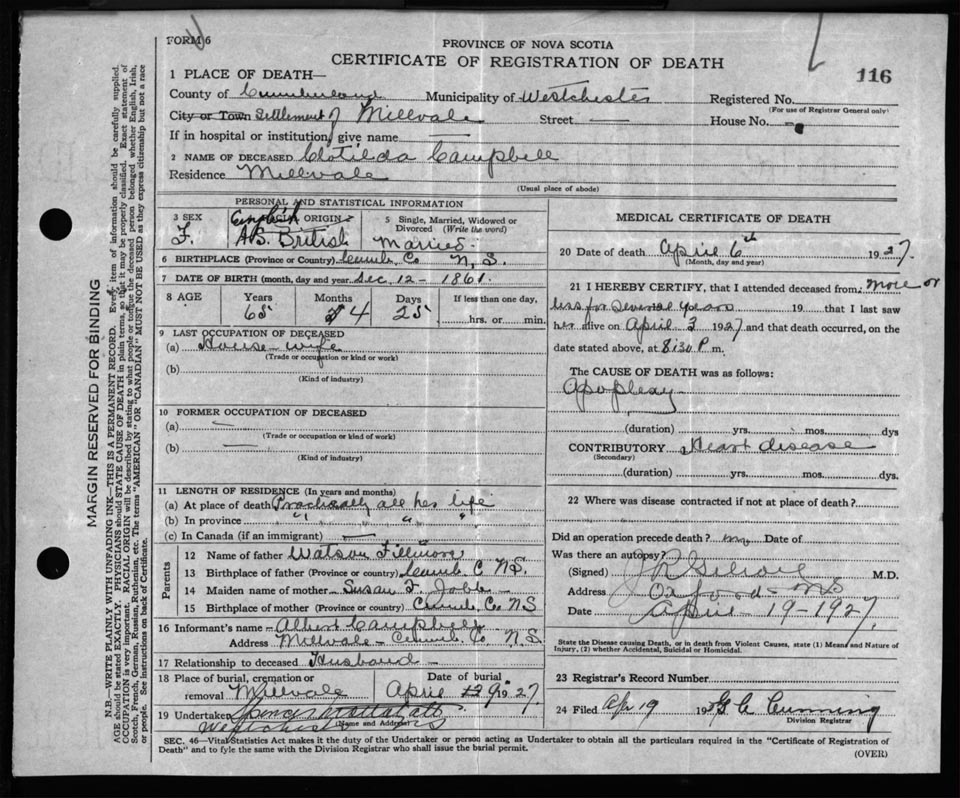 FORM 6
PROVINCE OF NOVA SCOTIA
CERTIFICATE OF REGISTRATION OF DEATH
116
1 PLACE OF DEATH—
County of Cumberland Municipality of Westchester Registered No.
(For use of Registrar General only)
City or Town Settlement of Millvale Street — House No. —
If in hospital or institution, give name —
2 NAME OF DECEASED Clotilda Campbell
Residence Millvale
(Usual place of abode)
PERSONAL AND STATISTICAL INFORMATION
3 SEX
F.
English ORIGIN
British
5 Single, Married, Widowed or Divorced (Write the word)
Married
6 BIRTHPLACE (Province or Country) Cumb. Co N. S.
7 DATE OF BIRTH (month, day and year) Dec. 12 - 1861
8 AGE Years Months Days If less than one day,
65 4 25 hrs. or min.
9 LAST OCCUPATION OF DECEASED
(a) House-wife
(Trade or occupation or kind or work)
(b)
(Kind of industry)
10 FORMER OCCUPATION OF DECEASED
(a) —
(Trade or occupation or kind of work)
(b) —
(Kind of industry)
11 LENGTH OF RESIDENCE (In years and months)
(a) At place of death Practically all her life
(b) In province " " "
(c) In Canada (if an immigrant) —
Parents
12 Name of father Watson Fillmore
13 Birthplace of father (Province or country) Cumb. C. N.S.
14 Maiden name of mother Susan F.
15 Birthplace of mother (Province or country) Cumb. Co NS
16 Informant's name Albert Campbell
Address Millvale - Cumb. Co. N. S.
17 Relationship to deceased Husband -
18 Place of burial, cremation or removal Millvale
Date of burial April 9 1927
19 Undertaker Spencer
(Name and Address)
Westchester
MEDICAL CERTIFICATE OF DEATH
20 Date of death April 6th 1927
(Month, day and year)
21 I HEREBY CERTIFY, that I attended deceased from More or
less for several years 19 that I last saw
her alive on April 3 1927 and that death occurred, on the
date stated above, at 8:30 P m.
The CAUSE OF DEATH was as follows:
Apoplexy
(duration) yrs. mos. dys
CONTRIBUTORY Heart disease
(Secondary)
(duration) yrs. mos. dys.
22 Where was disease contracted if not at place of death?
Did an operation precede death? no Date of
Was there an autopsy?
(Signed) M.D.
Address Oxford - NS
Date April - 19 - 1927
State the Disease causing Death, or in death from Violent Causes, state (1) Means and Nature of
Injury, (2) whether Accidental, Suicidal or Homicidal.
23 Registrar's Record Number
24 Filed Apr 19 19 G C Cunning
Division Registrar
SEC. 46—Vital Statistics Act makes it the duty of the Undertaker or person acting as Undertaker to obtain all the particulars required in the "Certificate of Registration of
Death" and to fyle the same with the Division Registrar who shall issue the burial permit.
(OVER)
MARGIN RESERVED FOR BINDING
N.B.—WRITE PLAINLY WITH UNFADING INK—THIS IS A PERMANENT RECORD. Every item of information should be carefully supplied.
AGE should be stated EXACTLY. PHYSICIANS should STATE CAUSE OF DEATH in plain terms, so that it may be properly classified. Exact statement of
OCCUPATION is very important. RACIAL ORIGIN will be described by stating to what people or tongue the deceased person belonged whether English, Irish,
Scotch, French, German, Russian, Ruthenian, etc. The terms "AMERICAN" OR "CANADIAN" MUST NOT BE USED as they express citizenship but not a race
or people. See instructions on back of Certificate.